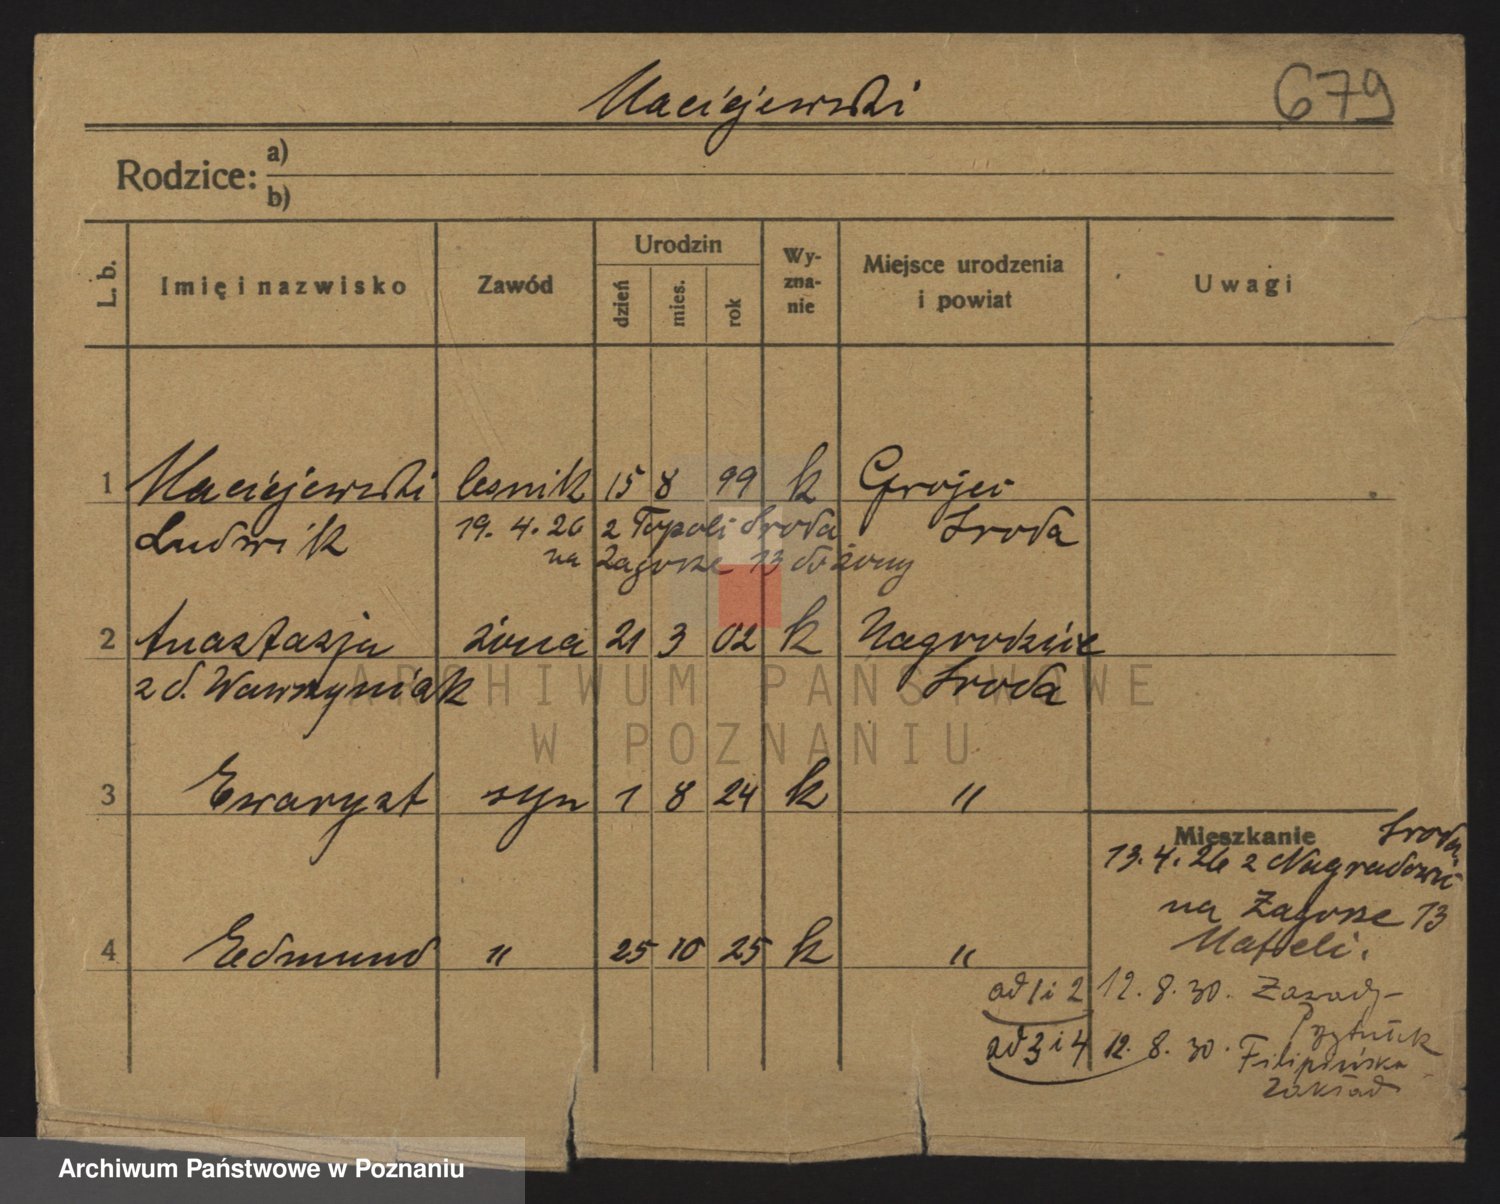 Maciejewski
679
Rodzice:
a)
b)
L. b.
Imię i nazwisko
Zawód
Urodzin
dzień
mies.
rok
Wy-
zna-
nie
Miejsce urodzenia
i powiat
Uwagi
1 Maciejewski leśnik 15 8 99 k Grójec
Ludwik 19. 4. 26 z Topoli Środa Środa
na Zagórze 13 do żony
2 Anastazja żona 21 3 02 k
z d. Wawrzyniak Środa
3 Ewaryst syn 1 8 24 k "
Mieszkanie Środa
13. 4. 26 z
na Zagórze 13
4 Edmund " 25 10 25 k "
ad 1 i 2 12. 8. 30.
ad 3 i 4 12. 8. 30. Filipińska
Zakład
ARCHIWUM PAŃSTWOWE
W POZNANIU
Archiwum Państwowe w Poznaniu